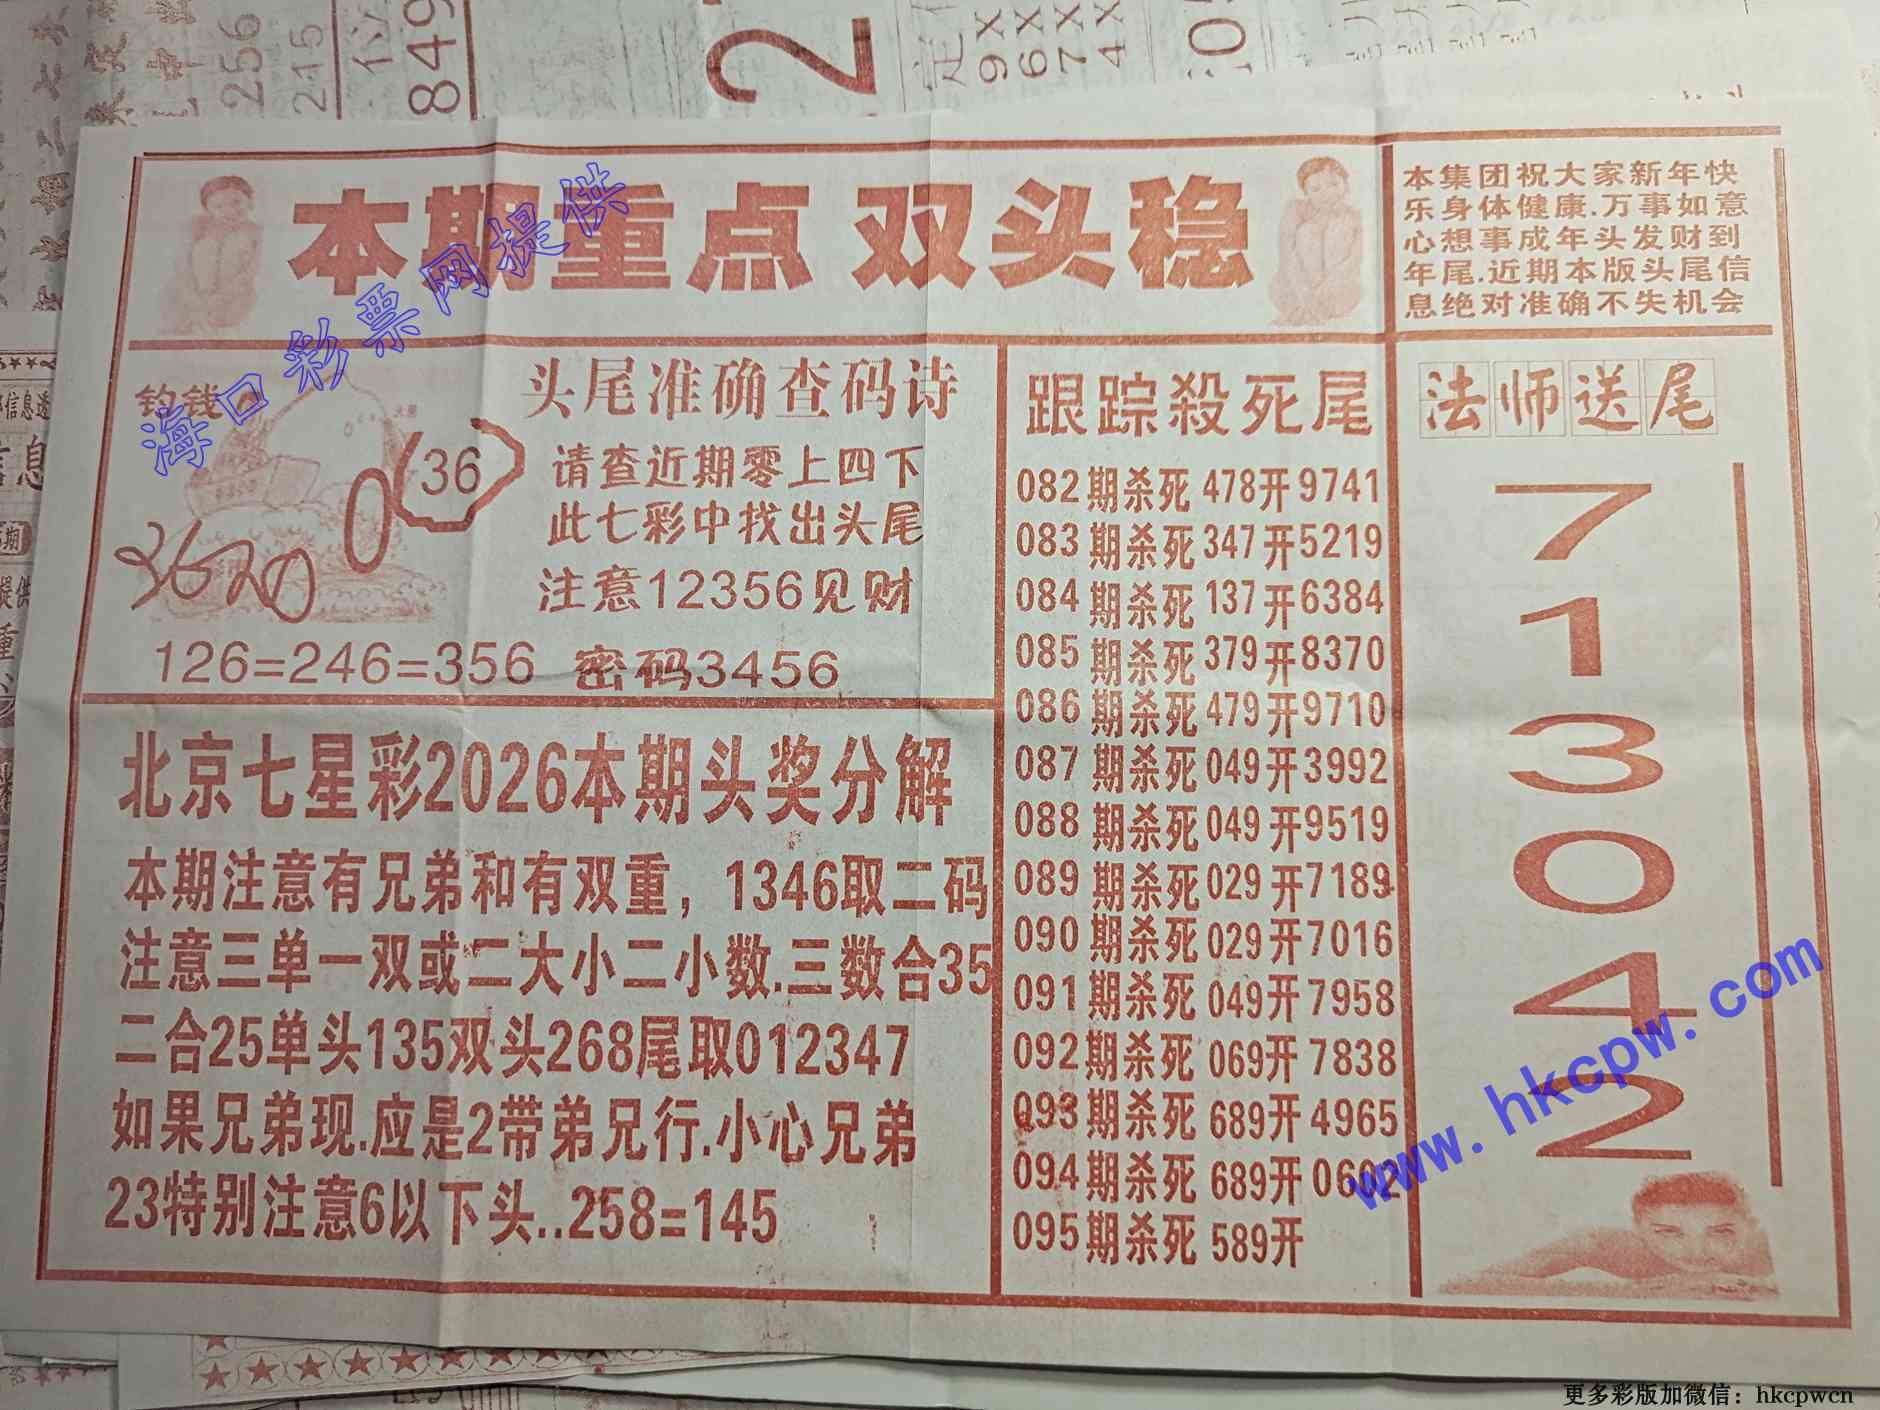 本期重点 双头稳
本集团祝大家新年快
乐身体健康.万事如意
心想事成年头发财到
年尾.近期本版头尾信
息绝对准确不失机会
海口彩票网提供
钓钱
头尾准确查码诗
(36)
0
请查近期零上四下
此七彩中找出头尾
注意12356见财
126=246=356 密码3456
北京七星彩2026本期头奖分解
本期注意有兄弟和有双重，1346取二码
注意三单一双或二大小二小数.三数合35
二合25单头135双头268尾取012347
如果兄弟现.应是2带弟兄行.小心兄弟
23特别注意6以下头..258=145
跟踪殺死尾
082期杀死478开9741
083期杀死347开5219
084期杀死137开6384
085期杀死379开8370
086期杀死479开9710
087期杀死049开3992
088期杀死049开9519
089期杀死029开7189
090期杀死029开7016
091期杀死049开7958
092期杀死069开7838
093期杀死689开4965
094期杀死689开0602
095期杀死589开
法师送尾
7
1
3
0
4
2
www.hkcpw.com
更多彩版加微信：hkcpwcn
256
215
849
2
9X
6X
7X
4X